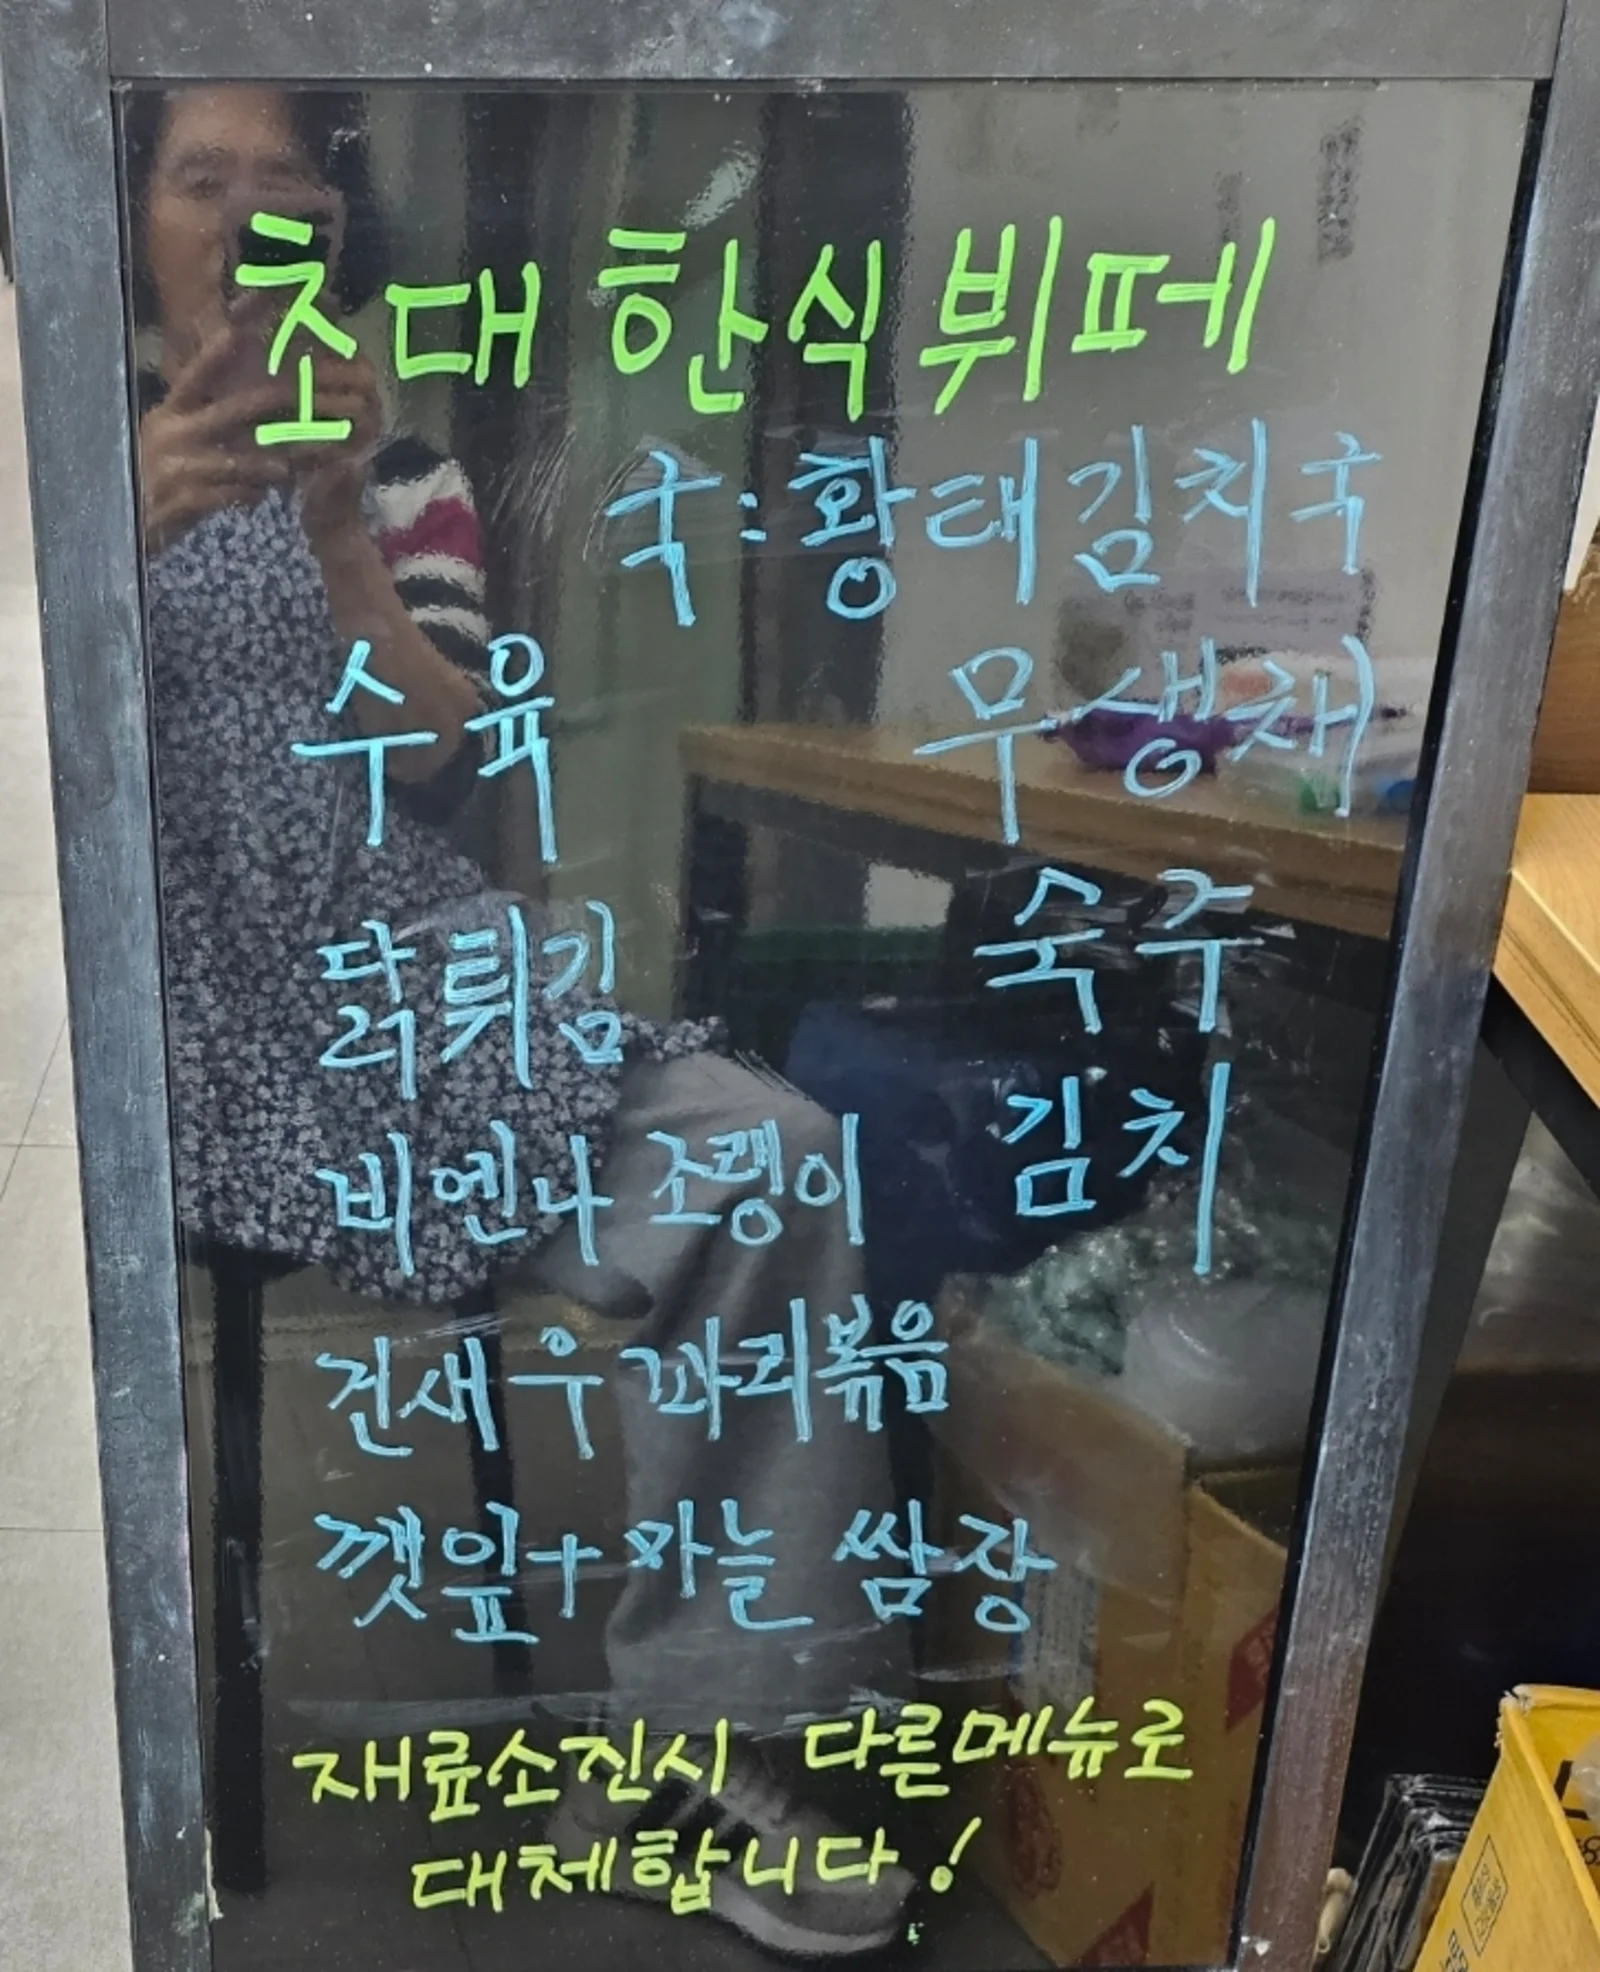 초대 한식뷔페
국:황태김치국
수육 무생채
닭튀김 숙주
비엔나 조랭이 김치
건새우꽈리볶음
깻잎+마늘 쌈장
재료소진시 다른메뉴로
대체합니다!